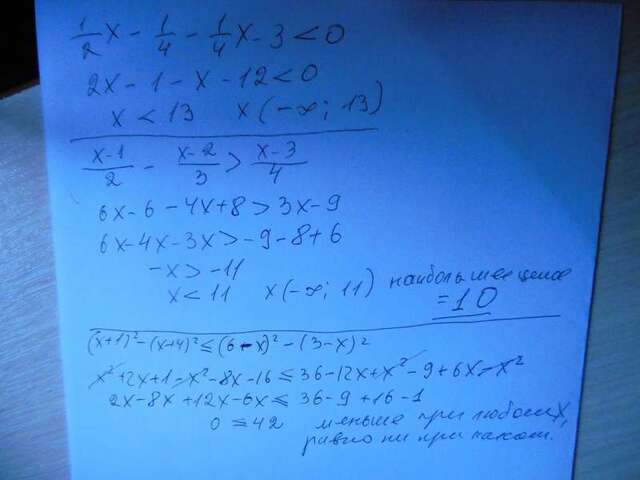 1/2 x - 1/4 - 1/4 x - 3 < 0
2x - 1 - x - 12 < 0
x < 13 x (-∞; 13)
(x-1)/2 - (x-2)/3 > (x-3)/4
6x - 6 - 4x + 8 > 3x - 9
6x - 4x - 3x > -9 - 8 + 6
-x > -11
x < 11 x (-∞; 11) наибольшее целое
= 10
(x+1)² - (x+4)² ≤ (6-x)² - (3-x)²
x² + 2x + 1 - x² - 8x - 16 ≤ 36 - 12x + x² - 9 + 6x - x²
2x - 8x + 12x - 6x ≤ 36 - 9 + 16 - 1
0 ≤ 42 меньше при любом x,
равно ни при каком.